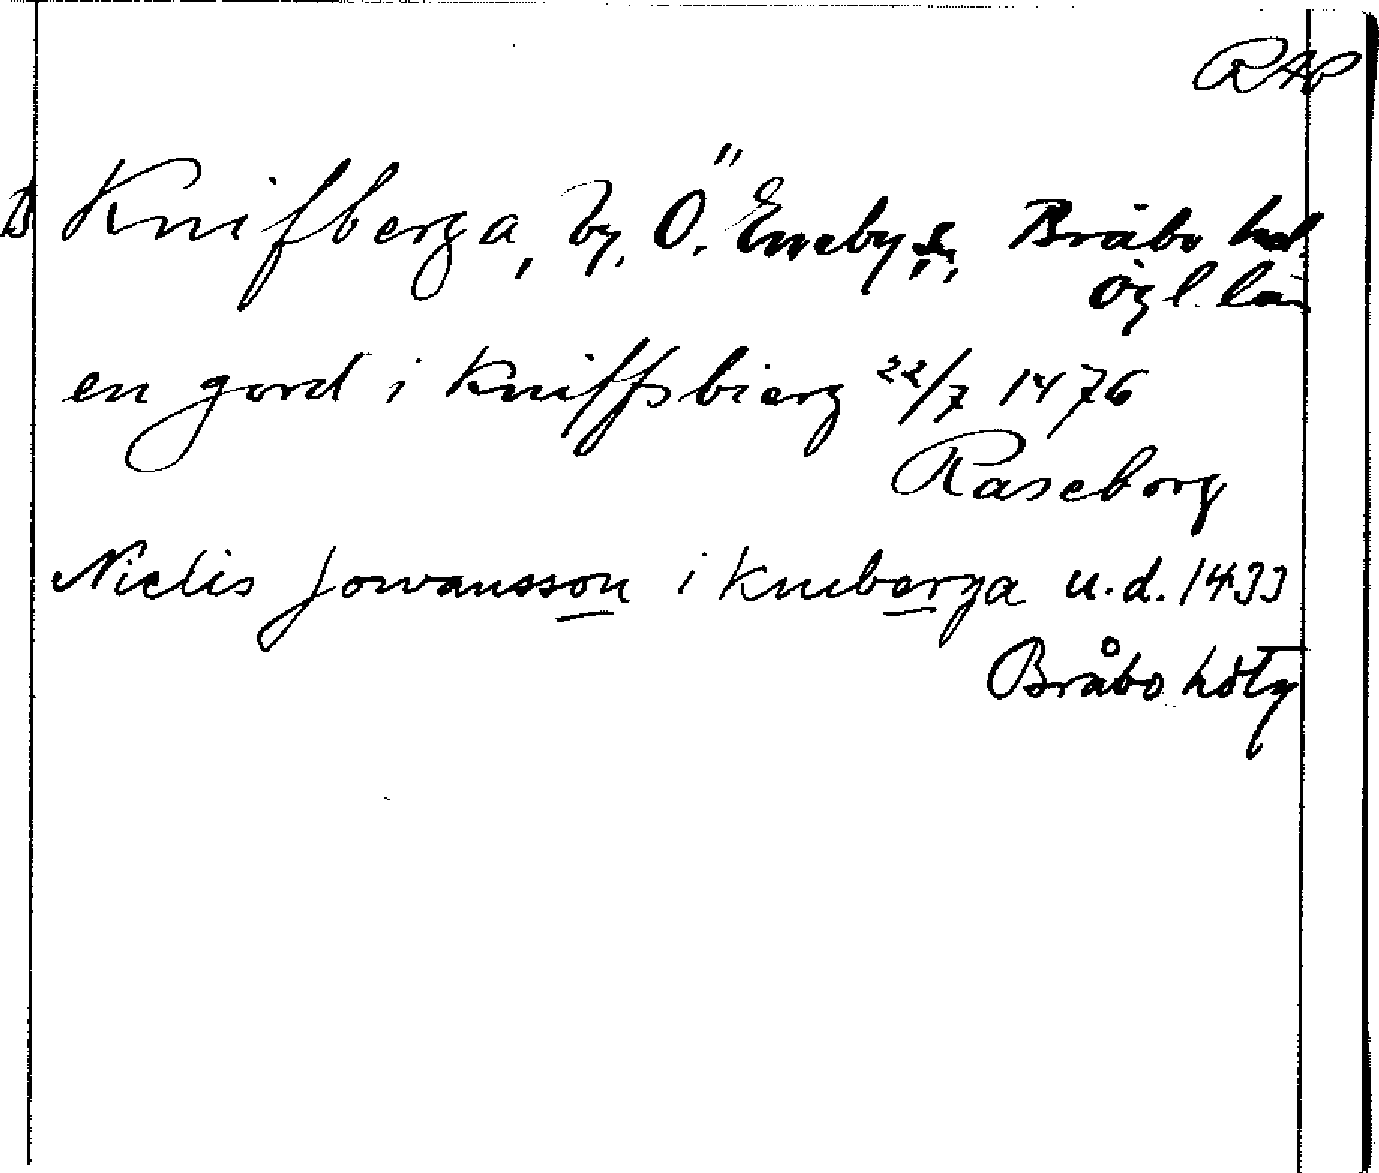 RAP
Knifberga, by, Ö. Eneby s., Bråbo hd,
Ögl. län
en gord i Kniffsbierg 22/7 1476
Raseborg
Nielis Jowansson i Kneberga u.d. 1433
Bråbo hdtg